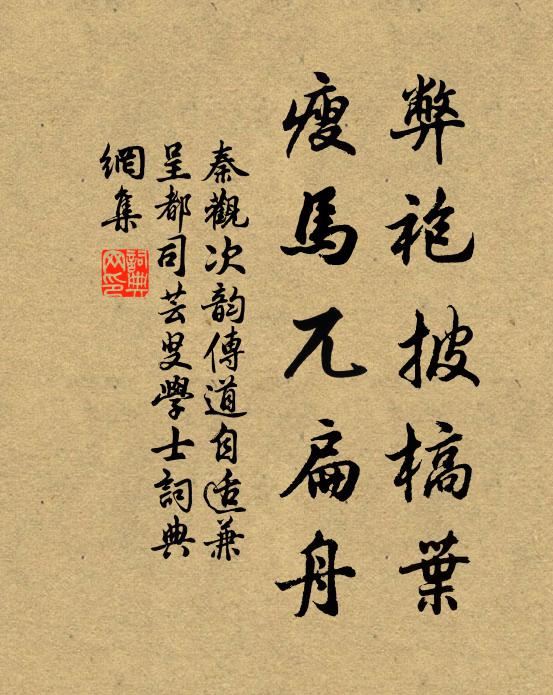 弊袍披槁葉
瘦馬兀扁舟
秦觀次韵傳道自适兼
呈都司芸叟學士詞典
網集
詞典網印